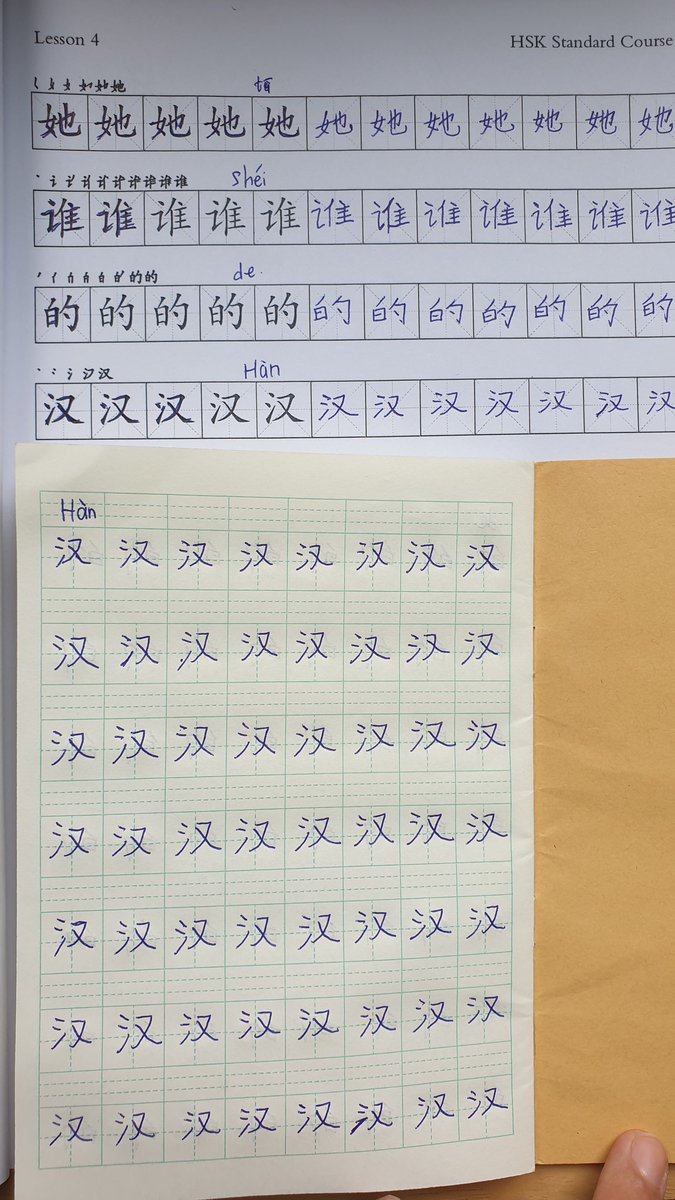 Lesson 4 HSK Standard Course
tā
她 她 她 她 她 她 她 她 她 她 她 她
shéi
谁 谁 谁 谁 谁 谁 谁 谁 谁 谁 谁 谁
de
的 的 的 的 的 的 的 的 的 的 的 的
Hàn
汉 汉 汉 汉 汉 汉 汉 汉 汉 汉 汉 汉
Hàn
汉 汉 汉 汉 汉 汉 汉 汉
汉 汉 汉 汉 汉 汉 汉 汉
汉 汉 汉 汉 汉 汉 汉 汉
汉 汉 汉 汉 汉 汉 汉 汉
汉 汉 汉 汉 汉 汉 汉 汉
汉 汉 汉 汉 汉 汉 汉 汉
汉 汉 汉 汉 汉 汉 汉 汉